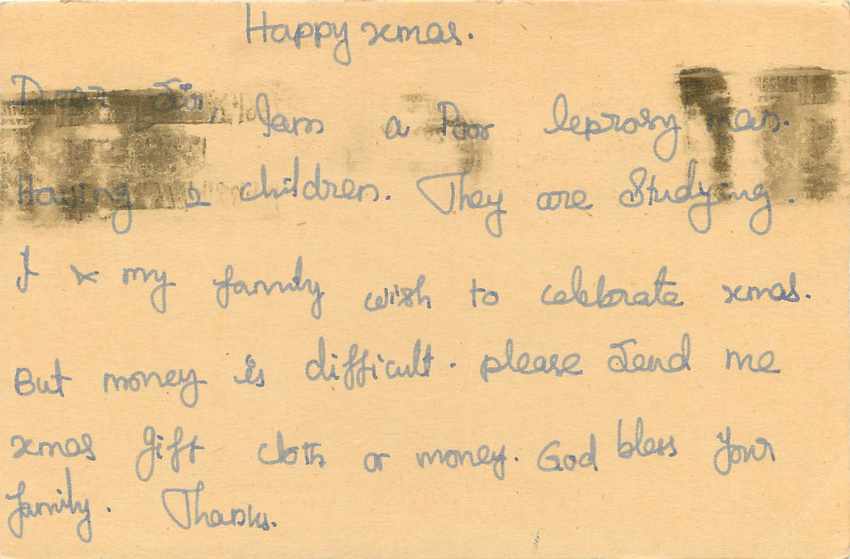 Happy xmas.
Dear Sir, Iam a Poor leprosy man.
Having 2 children. They are Studying.
I & my family wish to celebrate xmas.
But money is difficult. please Send me
xmas gift cloth or money. God bless your
family. Thanks.